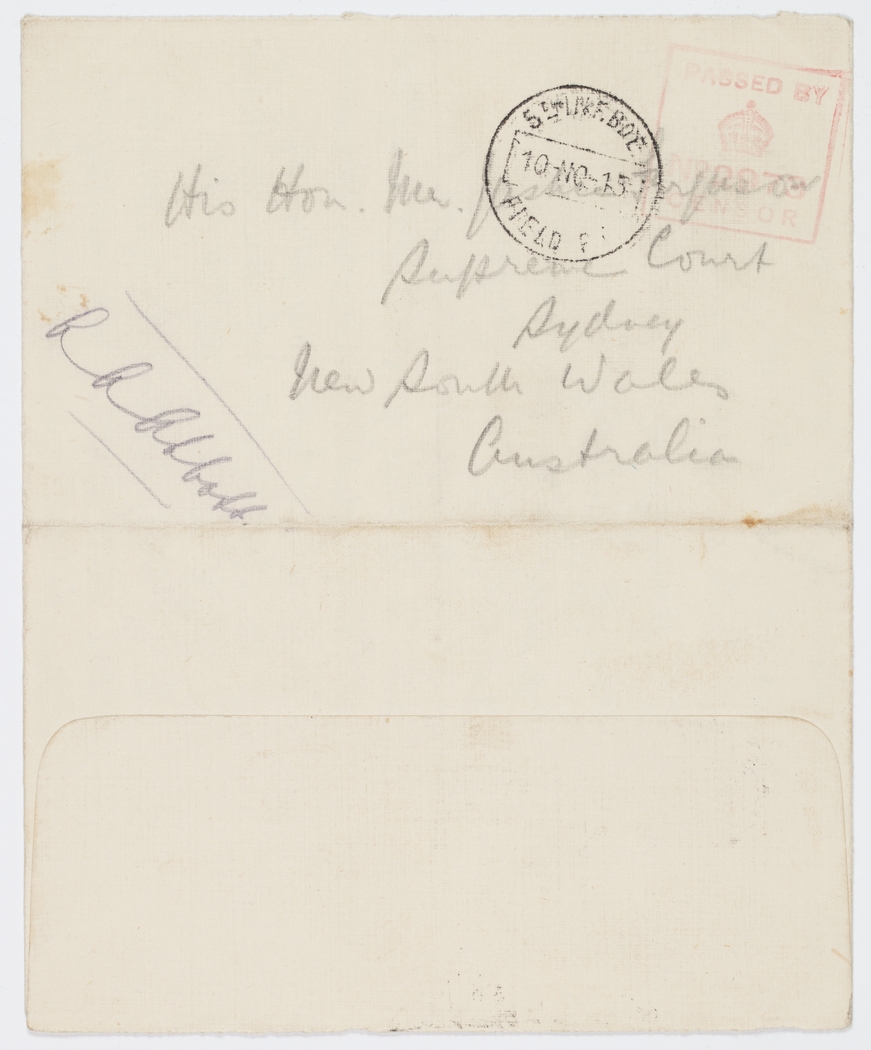 PASSED BY
CENSOR
5TH INF. BDE
10 NO 15
FIELD P
His Hon. Mr. Justice Ferguson
Supreme Court
Sydney
New South Wales
Australia
R A Abbott.